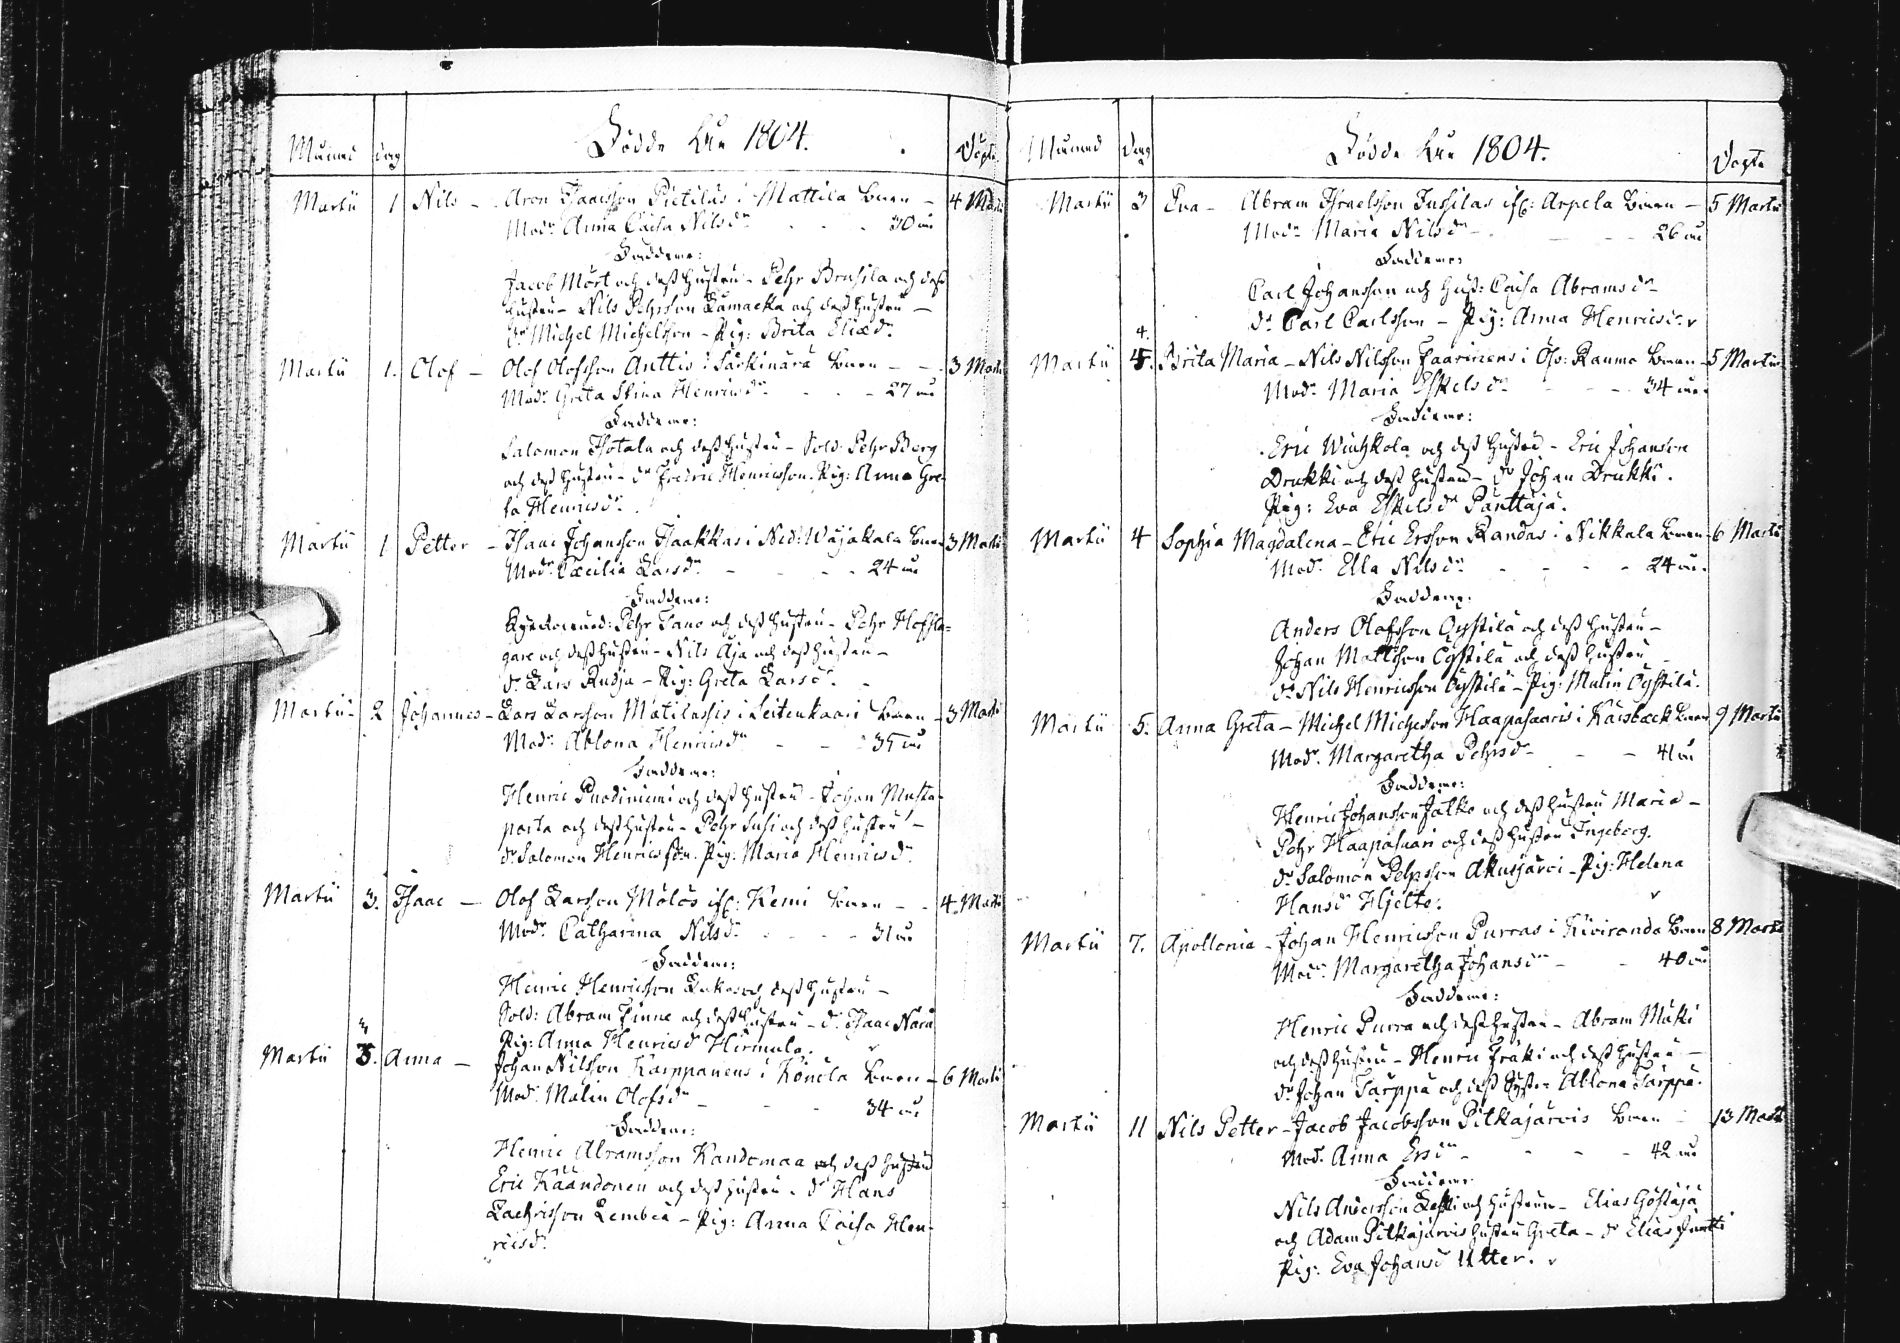 Månad dag Födde hu 1804. Döpte
Martii 1 Nils - Aron Isacsson Pietiläs i Mattila barn - 4 Martii
Modr Anna Caisa Nilsdr - - - 30 år
Faddrar:
Jacob Mört och dess hustru - Pehr Brusila och dess
hustru - Nils Pehrsson Lamacka och dess hustru -
Dr Michel Michelsson - Pig: Brita
Martii 1. Olof - Olof Olofsson Anttis i Särkinärä barn - - 3 Martii
Modr Greta Stina Henricsdr - - - 27 år
Faddrar:
Salomon och dess hustru - Sold: Pehr Berg
och dess hustru - dr Fredric Henricsson. Pig: Anna Gre-
ta Henricsdr.
Martii 1 Petter - Isaac Johansson Isaakkas i Ned: Wojakala barn 3 Martii
Modr Cæcilia Larsdr - - - - 24 år
Faddrar:
Pehr Tano och dess hustru - Pehr
gare och dess hustru - Nils Aja och dess hustru -
dr Lars Rudja - Pig: Greta Larsdr. -
Martii 2 Johannes - Lars Larsson Matilassis i Leitenkaari barn - 3 Martii
Modr Ablona Henricsdr - - 35 år
Faddrar:
Henric Puodiniemi och dess hustru - Johan Musta-
parta och dess hustru - Pehr Susi och dess hustru -
dr Salomon Henricsson. Pig: Maria Henricsdr.
Martii 3. Isaac - Olof Larsson Mölös ifr: Kemi barn - - 4 Martii
Modr Catharina Nilsdr - - - 31 år
Faddrar:
Henric Henricsson och dess hustru -
Sold: Abram Finne och dess hustru - dr Isaac
Pig: Anna Henricsdr Hirmula.
Martii 3. Anna - Johan Nilsson Karppanens i Könölä barn - 6 Martii
Modr Malin Olofsdr - - - 34 år
Faddrar:
Henric Abramsson Kandomaa och dess hustru
Eric Käändonen och dess hustru. dr Hans
Zachrisson Lembiä - Pig: Anna Caisa Hen-
ricsdr.
Månad Dag Födde hu 1804. Döpte
Martii 3 Eva - Abram Israelsson Jussilas ifr: Arpela barn - 5 Martii
Modr Maria Nilsdr - - - 26 år
Faddrar:
Carl Johansson och hust: Caisa Abramsdr -
dr Carl Carlsson - Pig: Anna Henricsdr
4
Martii Brita Maria - Nils Nilsson Haariniens i Öfv: Rauma barn - 5 Martii
Modr Maria Eskelsdr - - - 34 år.
Faddrar:
Eric Winhkola och dess hustru - Eric Johansson
Drukki och dess hustru - dr Johan Drukki.
Pig: Eva Eskelsdr Panttaja.
Martii 4 Sophia Magdalena - Eric Ersson Kandas i Nikkala barn - 6 Martii
Modr Ella Nilsdr - - - - 24 år.
Faddrar:
Anders Olofsson Oystilä och dess hustru -
Johan Mattsson Oystilä och dess hustru -
dr Nils Henricsson Oystilä - Pig: Malin Oystilä.
Martii 5. Anna Greta - Michel Michelsson Haapasaaris i Karsbäck barn 9 Martii
Modr Margaretha Pehrsdr - - - 41 år
Faddrar:
Henric Johansson Jatko och dess hustru Maria -
Pehr Haapasaari och dess hustru Ingeborg.
dr Salomon Pehrsson Akusjärvi - Pig: Helena
Hansdr Hjelte.
Martii 7. Apollonia - Johan Henricsson Purras i Kiviranda barn 8 Martii
Modr Margaretha Johansdr - - 40 år
Faddrar:
Henric Purra och dess hustru - Abram Mäki
och dess hustru - Henric Fräki och dess hustru -
dr Johan Tärppä och dess syster Ablona Tärppä.
Martii 11 Nils Petter - Jacob Jacobsson Pitkäjärvis barn - 13 Martii
Modr Anna Ersdr - - - - 42 år
Faddrar
Nils Andersson och hustrun - Elias Göstajä
och Adam Pitkäjärvis hustru Greta - dr Elias
Pig: Eva Johansdr Utter.